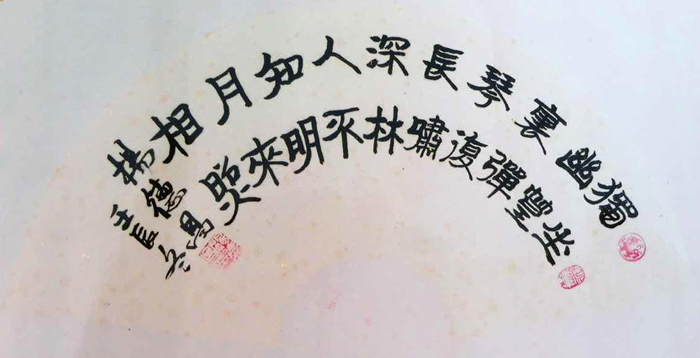 獨坐
幽篁
裏彈
琴復
長嘯
深林
人不
知明
月來
相照
楊德
壬辰冬